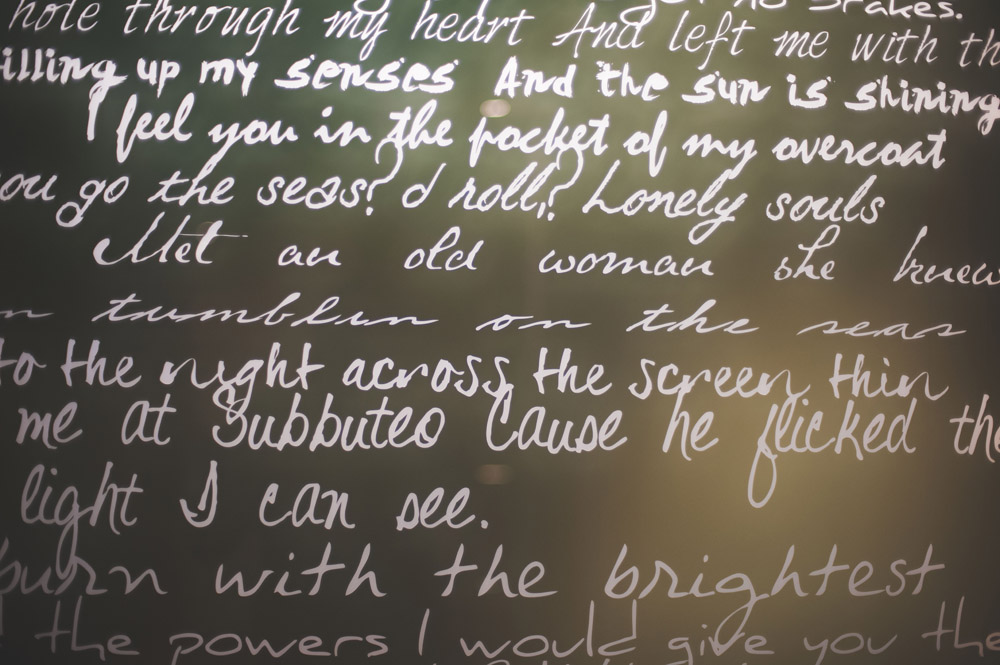 no brakes.
hole through my heart And left me with th
illing up my senses And the sun is shining
I feel you in the pocket of my overcoat
ou go the seas? d roll,? Lonely souls
Met an old woman she knew
n tumblin on the seas
to the night across the screen thin
me at Subbuteo Cause he flicked the
light I can see.
burn with the brightest
the powers I would give you the